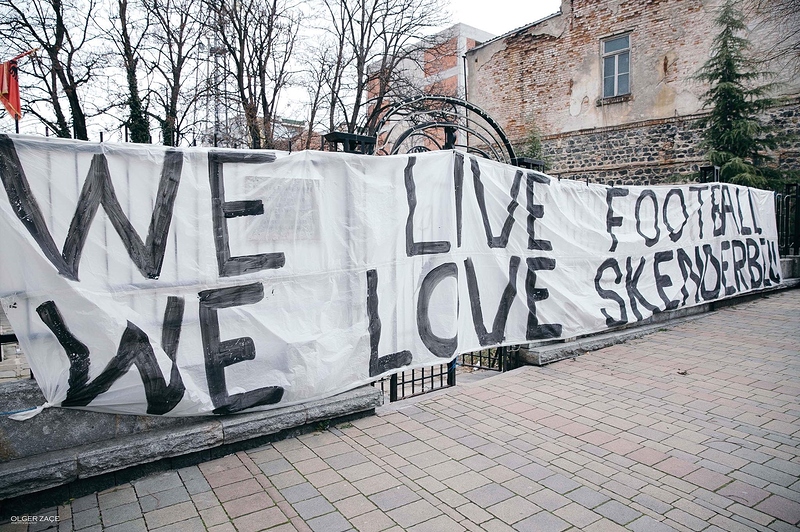 WE LIVE FOOTBALL
WE LOVE SKENDERBEU
OLGER ZACE